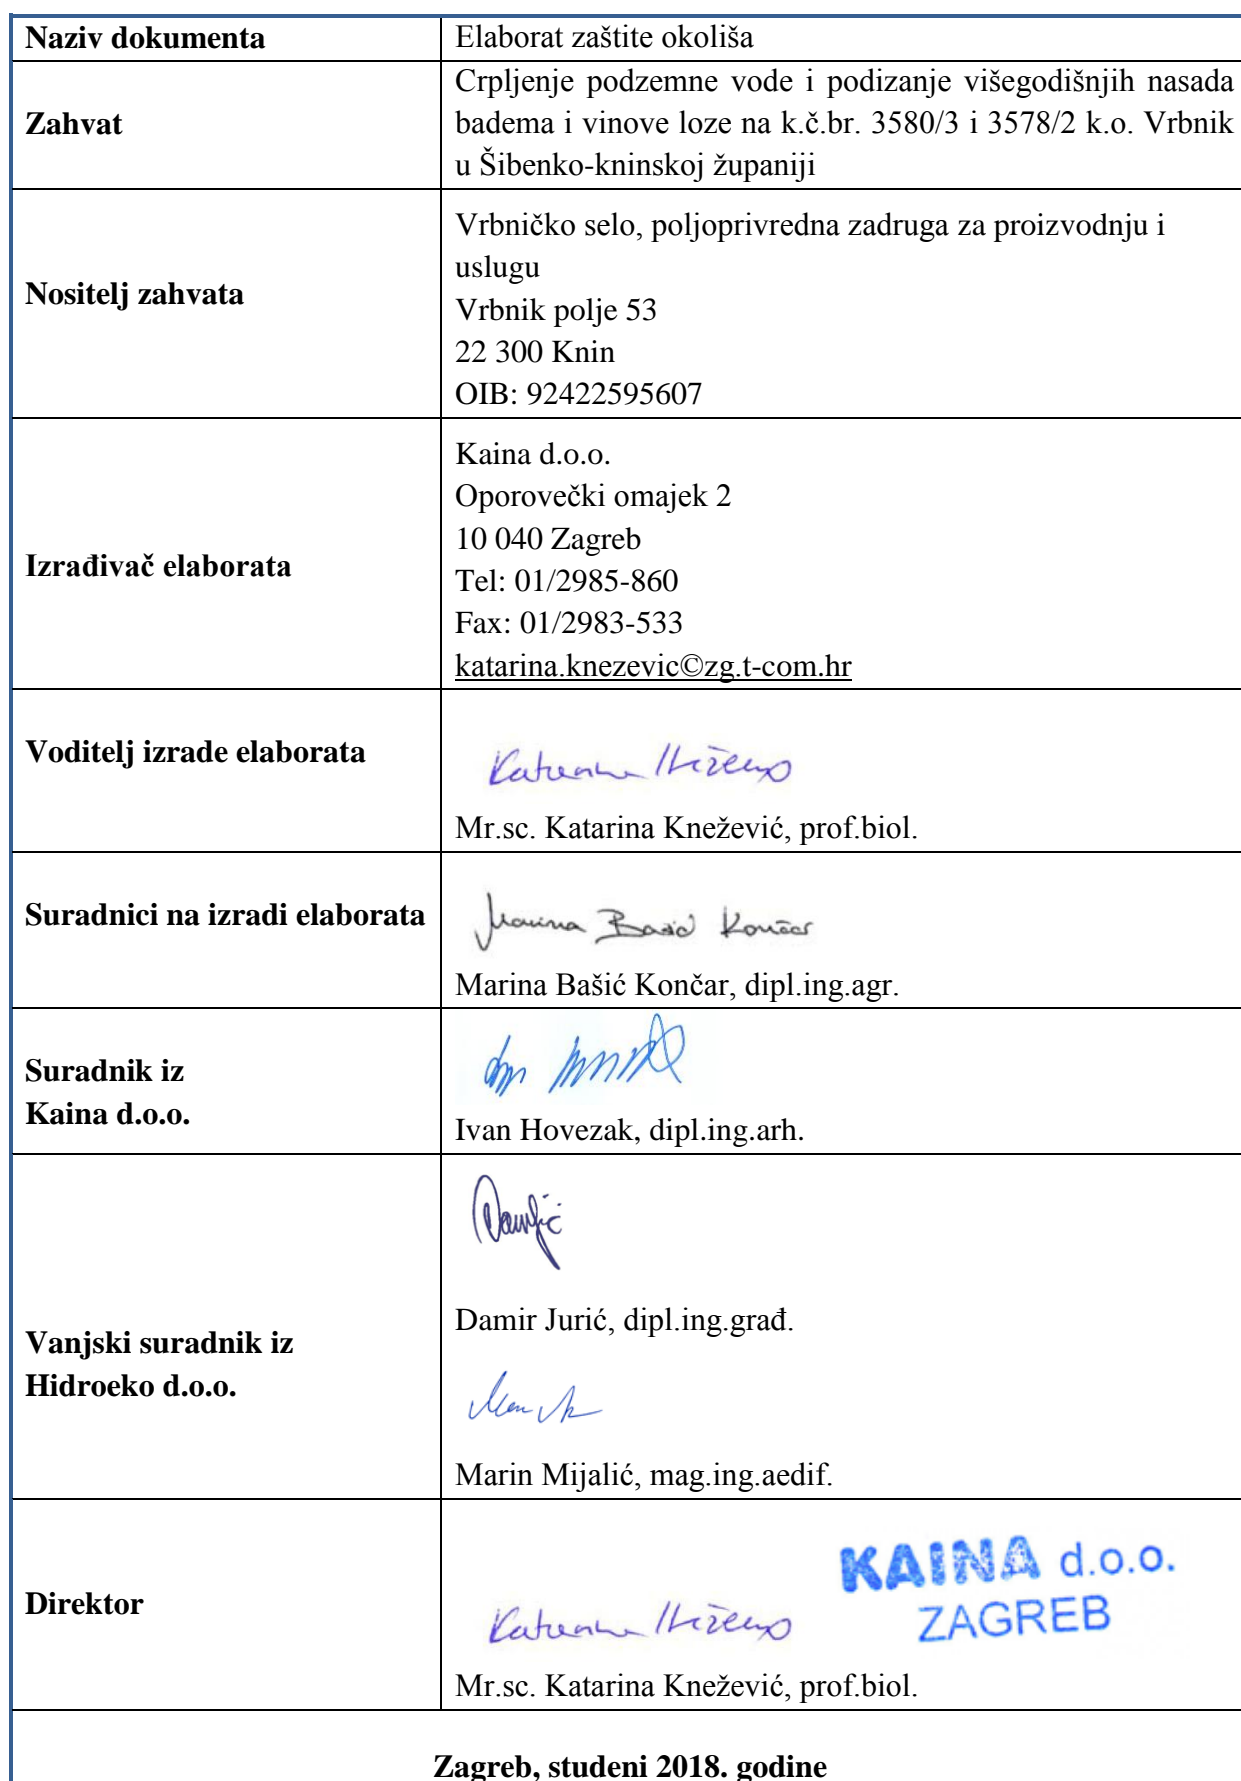 Naziv dokumenta
Elaborat zaštite okoliša
Zahvat
Crpljenje podzemne vode i podizanje višegodišnjih nasada
badema i vinove loze na k.č.br. 3580/3 i 3578/2 k.o. Vrbnik
u Šibenko-kninskoj županiji
Nositelj zahvata
Vrbničko selo, poljoprivredna zadruga za proizvodnju i
uslugu
Vrbnik polje 53
22 300 Knin
OIB: 92422595607
Izrađivač elaborata
Kaina d.o.o.
Oporovečki omajek 2
10 040 Zagreb
Tel: 01/2985-860
Fax: 01/2983-533
katarina.knezevic©zg.t-com.hr
Voditelj izrade elaborata
Mr.sc. Katarina Knežević, prof.biol.
Suradnici na izradi elaborata
Marina Bašić Končar
Marina Bašić Končar, dipl.ing.agr.
Suradnik iz
Kaina d.o.o.
Ivan Hovezak, dipl.ing.arh.
Vanjski suradnik iz
Hidroeko d.o.o.
Damir Jurić, dipl.ing.građ.
Marin Mijalić, mag.ing.aedif.
Direktor
KAINA d.o.o.
ZAGREB
Mr.sc. Katarina Knežević, prof.biol.
Zagreb, studeni 2018. godine